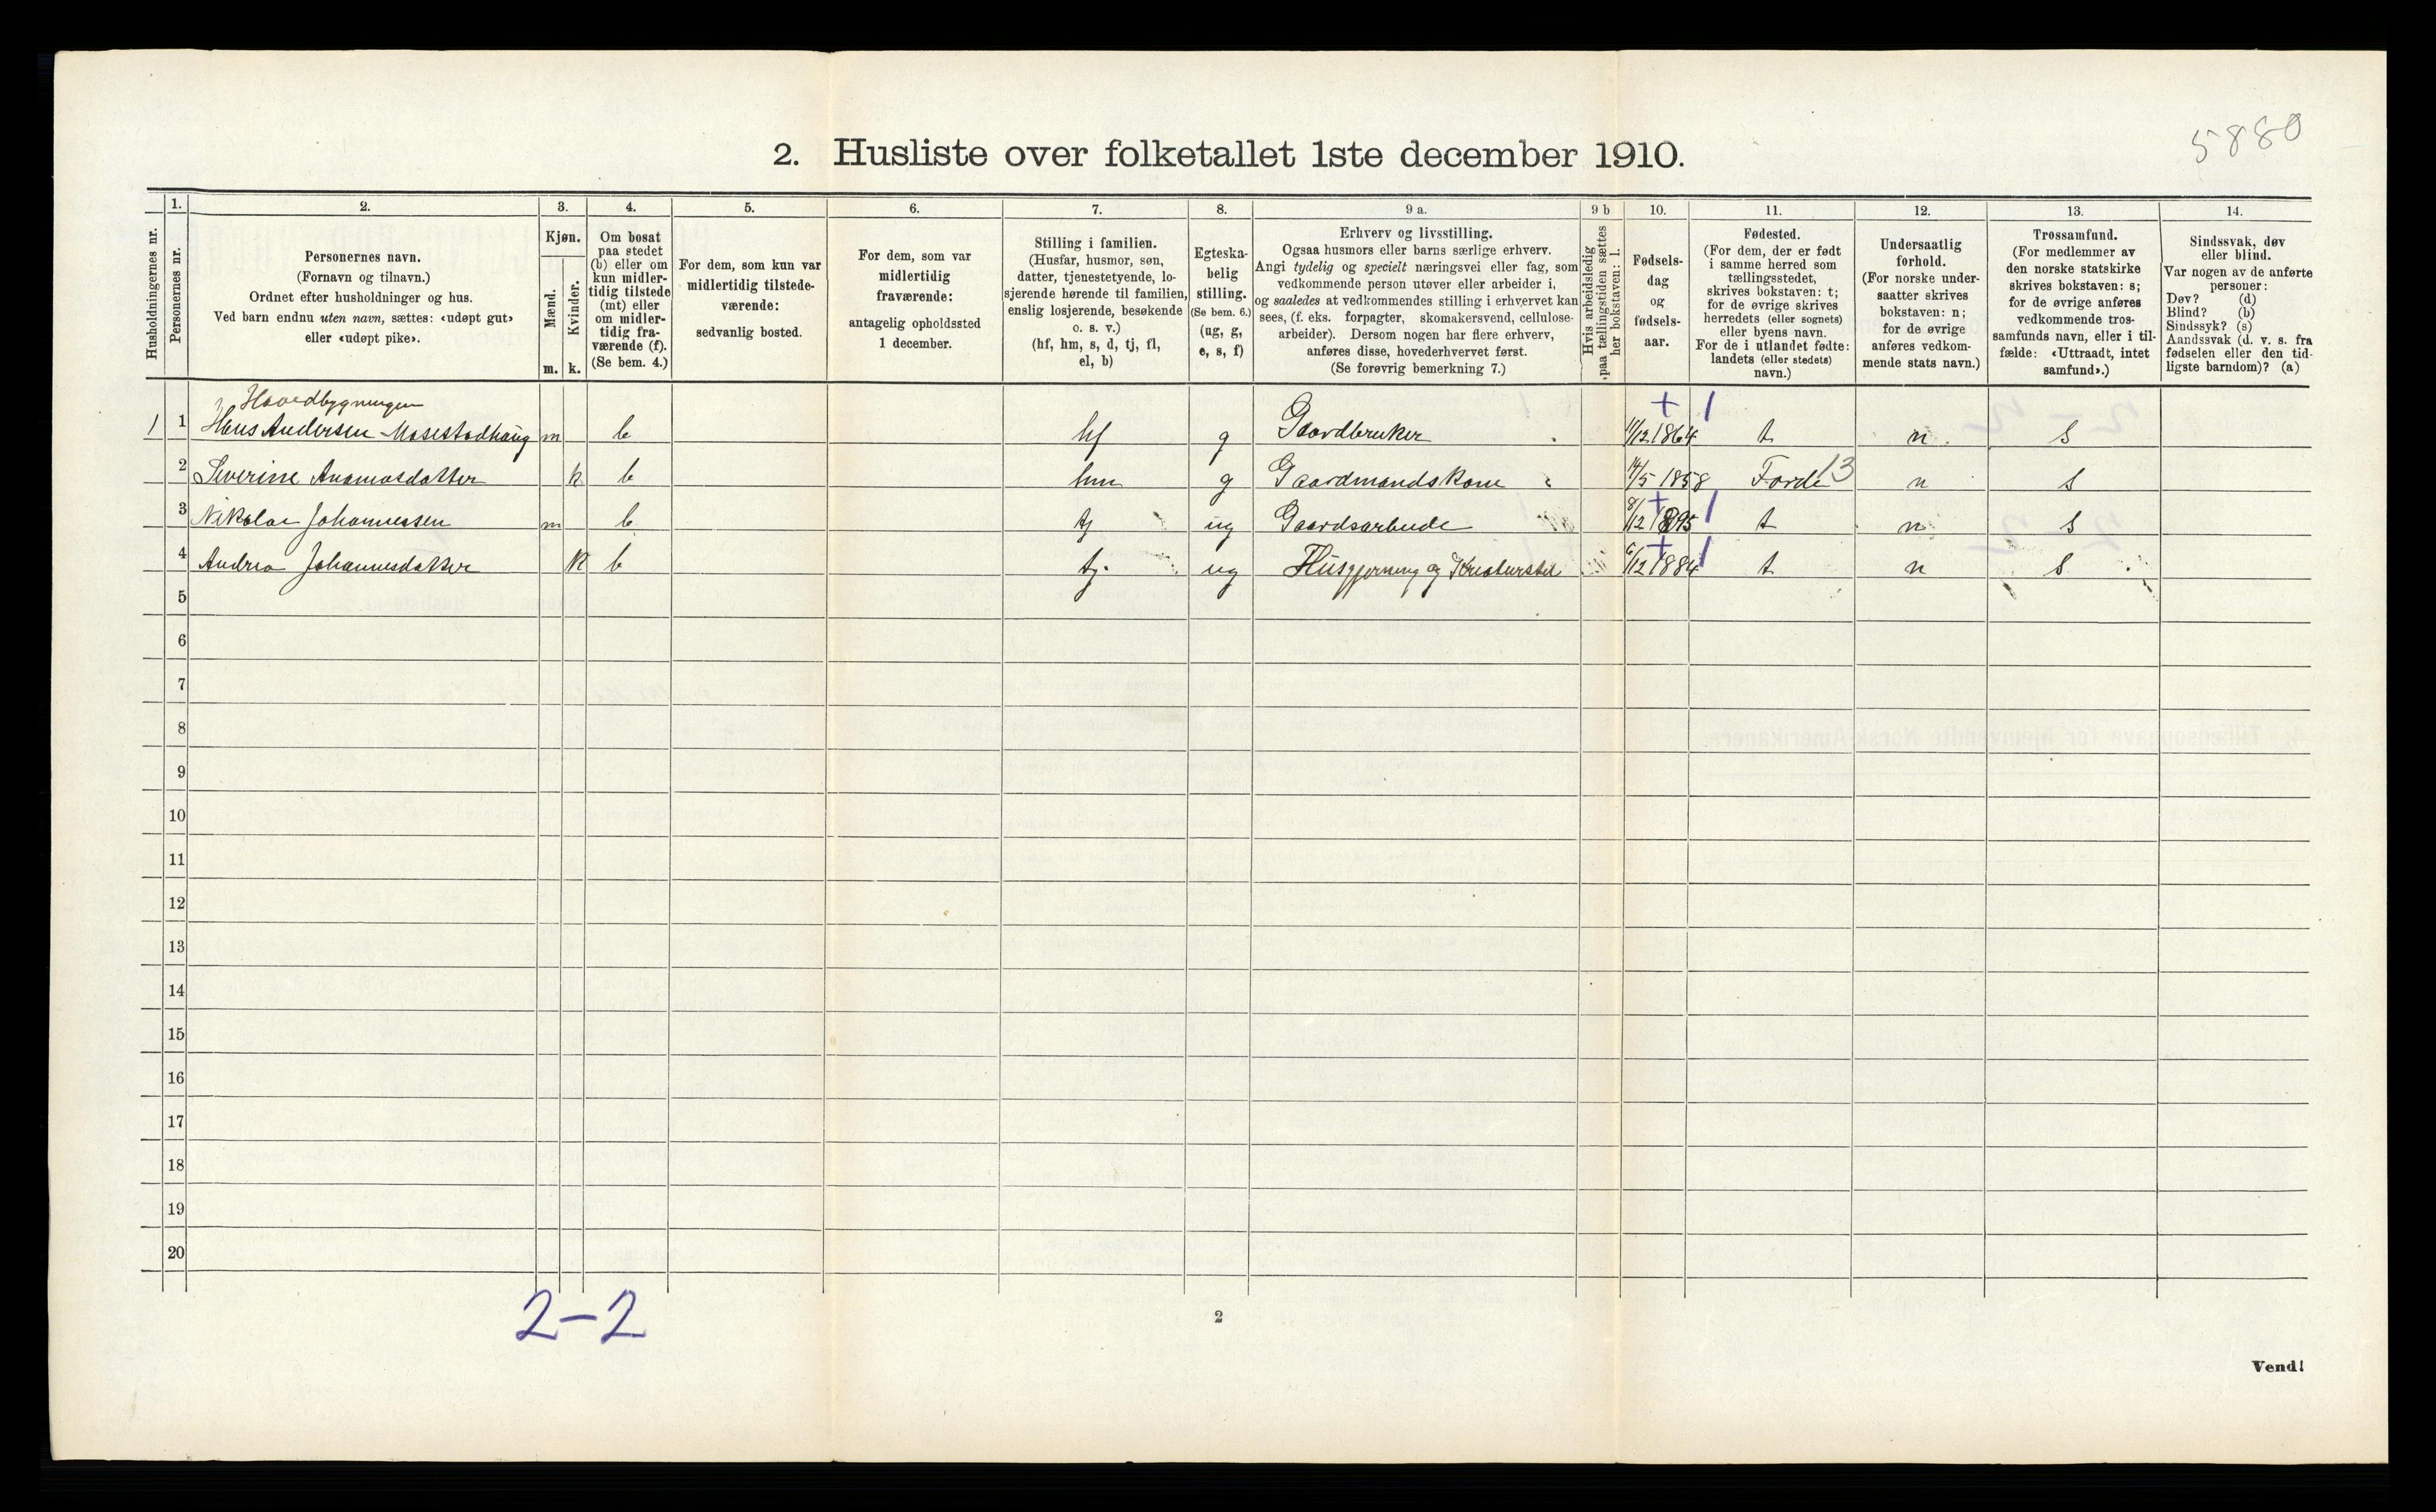 5880
2. Husliste over folketallet 1ste december 1910.
Husholdningernes nr.
1.
Personernes nr.
2.
Personernes navn.
(Fornavn og tilnavn.)
Ordnet efter husholdninger og hus.
Ved barn endnu uten navn, sættes: «udøpt gut»
eller «udøpt pike».
3.
Kjøn.
Mænd.
Kvinder.
m. k.
4.
Om bosat
paa stedet
(b) eller om
kun midler-
tidig tilstede
(mt) eller
om midler-
tidig fra-
værende (f).
(Se bem. 4.)
5.
For dem, som kun var
midlertidig tilstede-
værende:
sedvanlig bosted.
6.
For dem, som var
midlertidig
fraværende:
antagelig opholdssted
1 december.
7.
Stilling i familien.
(Husfar, husmor, søn,
datter, tjenestetyende, lo-
sjerende hørende til familien,
enslig losjerende, besøkende
o. s. v.)
(hf, hm, s, d, tj, fl,
el, b)
8.
Egteska-
belig
stilling.
(Se bem. 6.)
(ug, g,
e, s, f)
9 a.
Erhverv og livsstilling.
Ogsaa husmors eller barns særlige erhverv.
Angi tydelig og specielt næringsvei eller fag, som
vedkommende person utøver eller arbeider i,
og saaledes at vedkommendes stilling i erhvervet kan
sees, (f. eks. forpagter, skomakersvend, cellulose-
arbeider). Dersom nogen har flere erhverv,
anføres disse, hovederhvervet først.
(Se forøvrig bemerkning 7.)
9 b
Hvis arbeidsledig
paa tællingstiden sættes
her bokstaven: l.
10.
Fødsels-
dag
og
fødsels-
aar.
11.
Fødested.
(For dem, der er født
i samme herred som
tællingsstedet,
skrives bokstaven: t;
for de øvrige skrives
herredets (eller sognets)
eller byens navn.
For de i utlandet fødte:
landets (eller stedets)
navn.)
12.
Undersaatlig
forhold.
(For norske under-
saatter skrives
bokstaven: n;
for de øvrige
anføres vedkom-
mende stats navn.)
13.
Trossamfund.
(For medlemmer av
den norske statskirke
skrives bokstaven: s;
for de øvrige anføres
vedkommende tros-
samfunds navn, eller i til-
fælde: «Uttraadt, intet
samfund».)
14.
Sindssvak, døv
eller blind.
Var nogen av de anførte
personer:
Døv? (d)
Blind? (b)
Sindssyk? (s)
Aandssvak (d. v. s. fra
fødselen eller den tid-
ligste barndom)? (a)
Hovedbygningen + 1
1 1 Hans Andersen Mosestadhaug m b hf g Gaardbruker 11/12 1864 t n s
2 Severine k b hm g Gaardmandskone 14/5 1858 Førde 13 n s
3 Nikolai Johannessen m b tj ug Gaardsarbeide 8/12 1895 + 1 t n s
4 Andrea Johannesdatter k b tj. ug Husgjerning og Kreaturstel 6/12 1884 + 1 t n s
5
6
7
8
9
10
11
12
13
14
15
16
17
18
19
20
2-2
2
Vend!